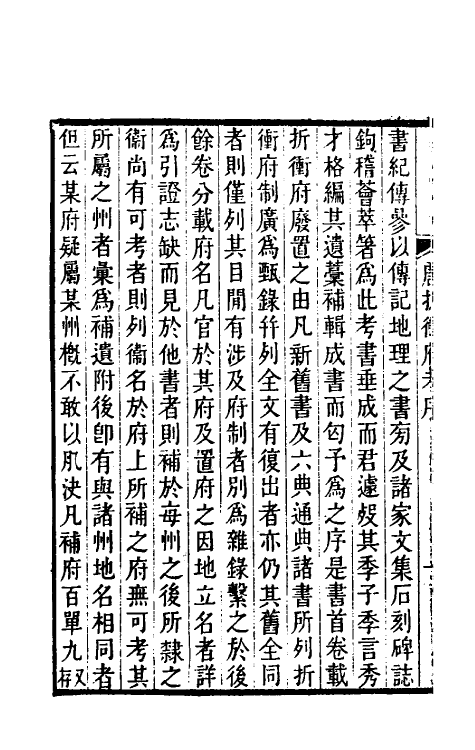 唐折衝府考序
書紀傳參以傳記地理之書旁及諸家文集石刻碑誌
鉤稽薈萃箸為此考書垂成而君遽歿其季子季言秀
才格編其遺藁補輯成書而匄予為之序是書首卷載
折衝府廢置之由凡新舊書及六典通典諸書所列折
衝府制廣為甄錄并列全文有復出者亦仍其舊全同
者則僅列其目閒有涉及府制者別為雜錄繫之於後
餘卷分載府名凡官於其府及置府之因地立名者詳
為引證志缺而見於他書者則補於每州之後所隸之
衞尚有可考者則列衞名於府上所補之府無可考其
所屬之州者彙為補遺附後卽有與諸州地名相同者
但云某府疑屬某州概不敢以肊決凡補府百單九又存